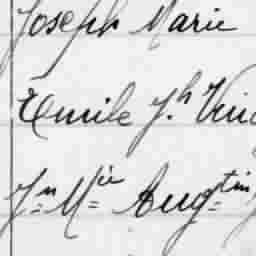 Joseph Marie
Emile J.h
Jn Mie Augtin